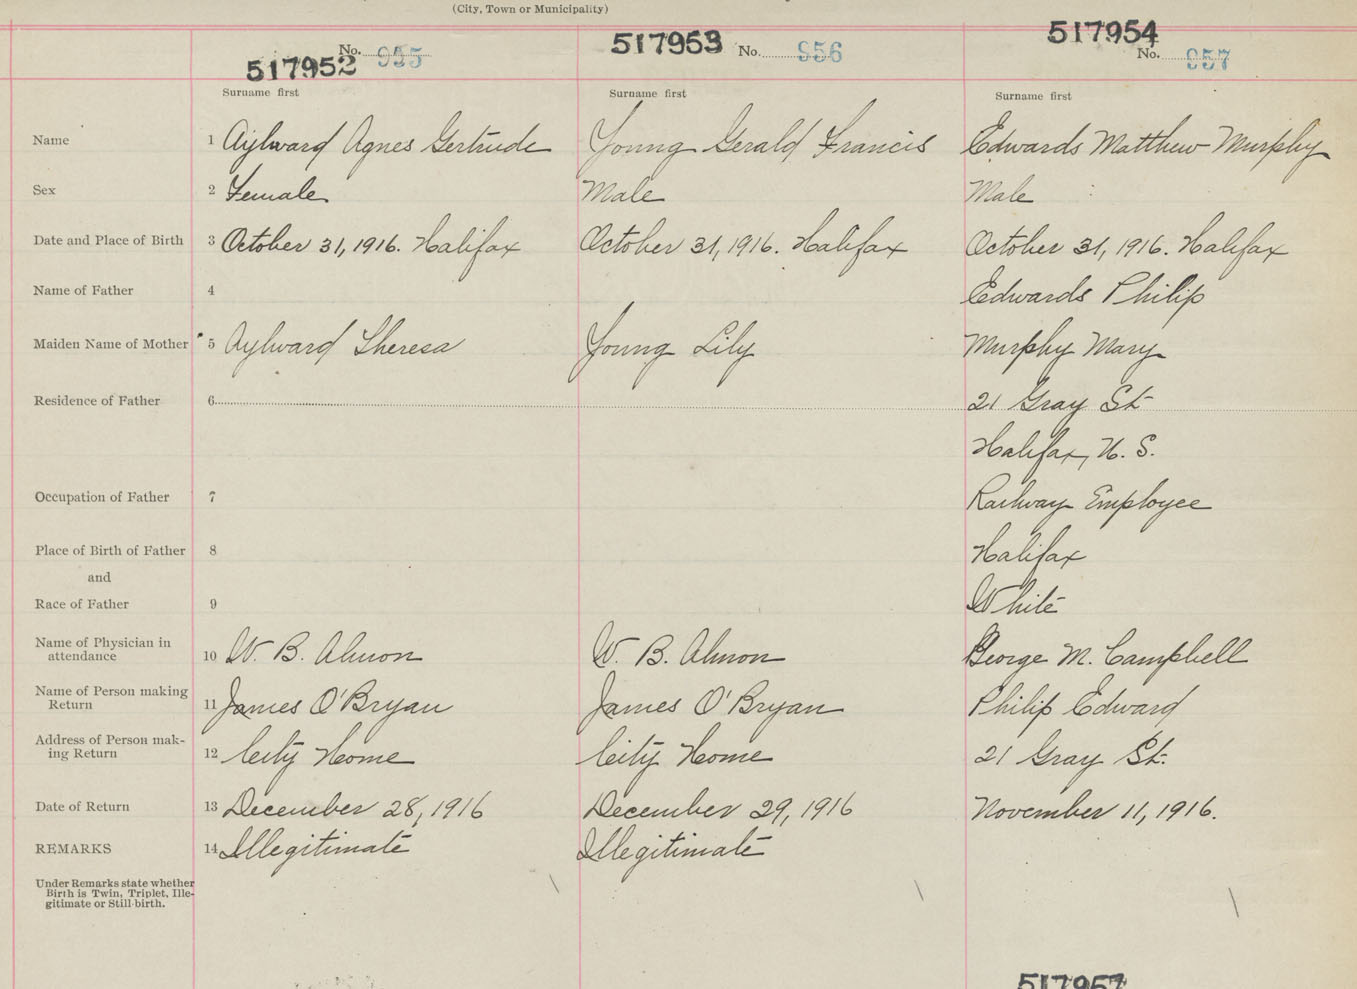 (City, Town or Municipality)
517952 No. 955
517953 No. 956
517954 No. 957
Surname first Surname first Surname first
Name 1 Aylward Agnes Gertrude Young Gerald Francis Edwards Matthew Murphy
Sex 2 Female Male Male
Date and Place of Birth 3 October 31, 1916. Halifax October 31, 1916. Halifax October 31, 1916. Halifax
Name of Father 4 Edwards Philip
Maiden Name of Mother 5 Aylward Theresa Young Lily Murphy Mary
Residence of Father 6 21 Gray St
Halifax, N. S.
Occupation of Father 7 Railway Employee
Place of Birth of Father 8 Halifax
and
Race of Father 9 White
Name of Physician in
attendance 10 W. B. Almon W. B. Almon George M. Campbell
Name of Person making
Return 11 James O'Bryan James O'Bryan Philip Edward
Address of Person mak-
ing Return 12 City Home City Home 21 Gray St.
Date of Return 13 December 28, 1916 December 29, 1916 November 11, 1916.
REMARKS 14 Illegitimate Illegitimate
Under Remarks state whether
Birth is Twin, Triplet, Ille-
gitimate or Still-birth.
517957